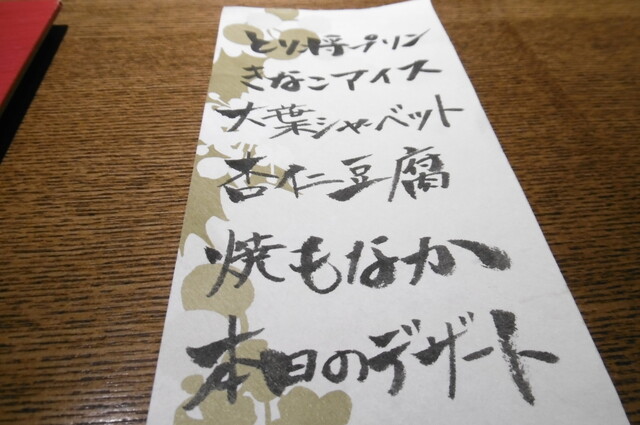 とり将プリン
きなこアイス
大葉シャーベット
杏仁豆腐
焼もなか
本日のデザート